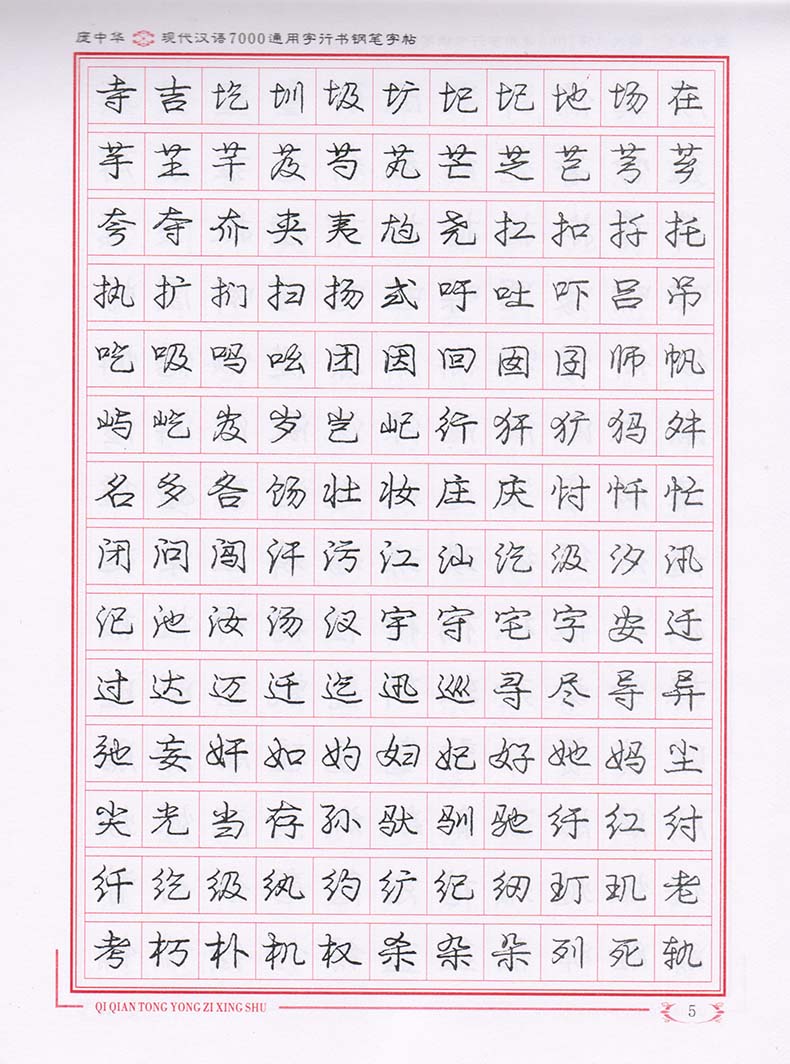 庞中华 现代汉语7000通用字行书钢笔字帖
寺吉圪圳圾圹圮圯地场在
芋芏芊芨芍芃芒芝芑芎芗
夸夺夼夹夷尥尧扛扣扦托
执扩扪扫扬式吁吐吓吕吊
吃吸吗吆团因回囡囝师帆
屿屹岌岁岂屺行犴犷犸舛
名多各饧壮妆庄庆忖忏忙
闭问闯汗污江汕汔汲汐汛
汜池汝汤汊宇守宅字安迂
过达迈迁迄迅巡寻尽导异
弛妄奸如妁妇妃好她妈尘
尖光当存孙驮驯驰纡红纣
纤纥级纨约纩纪纫玎玑老
考朽朴机权杀杂朵列死轨
QI QIAN TONG YONG ZI XING SHU
5